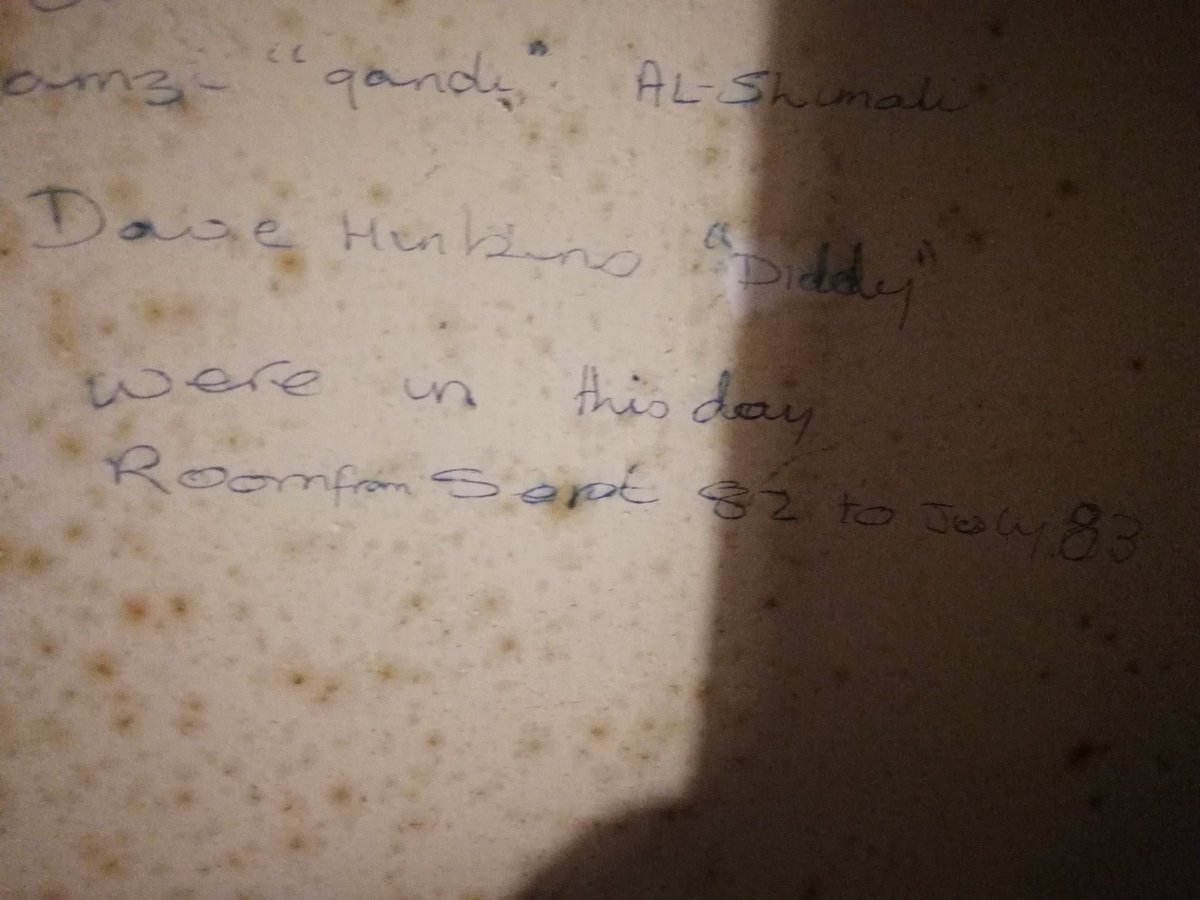 amzi - "gandi" AL-Shimali
Dave Hinkins "Diddy"
were in this day
Room from Sept 82 to July 83